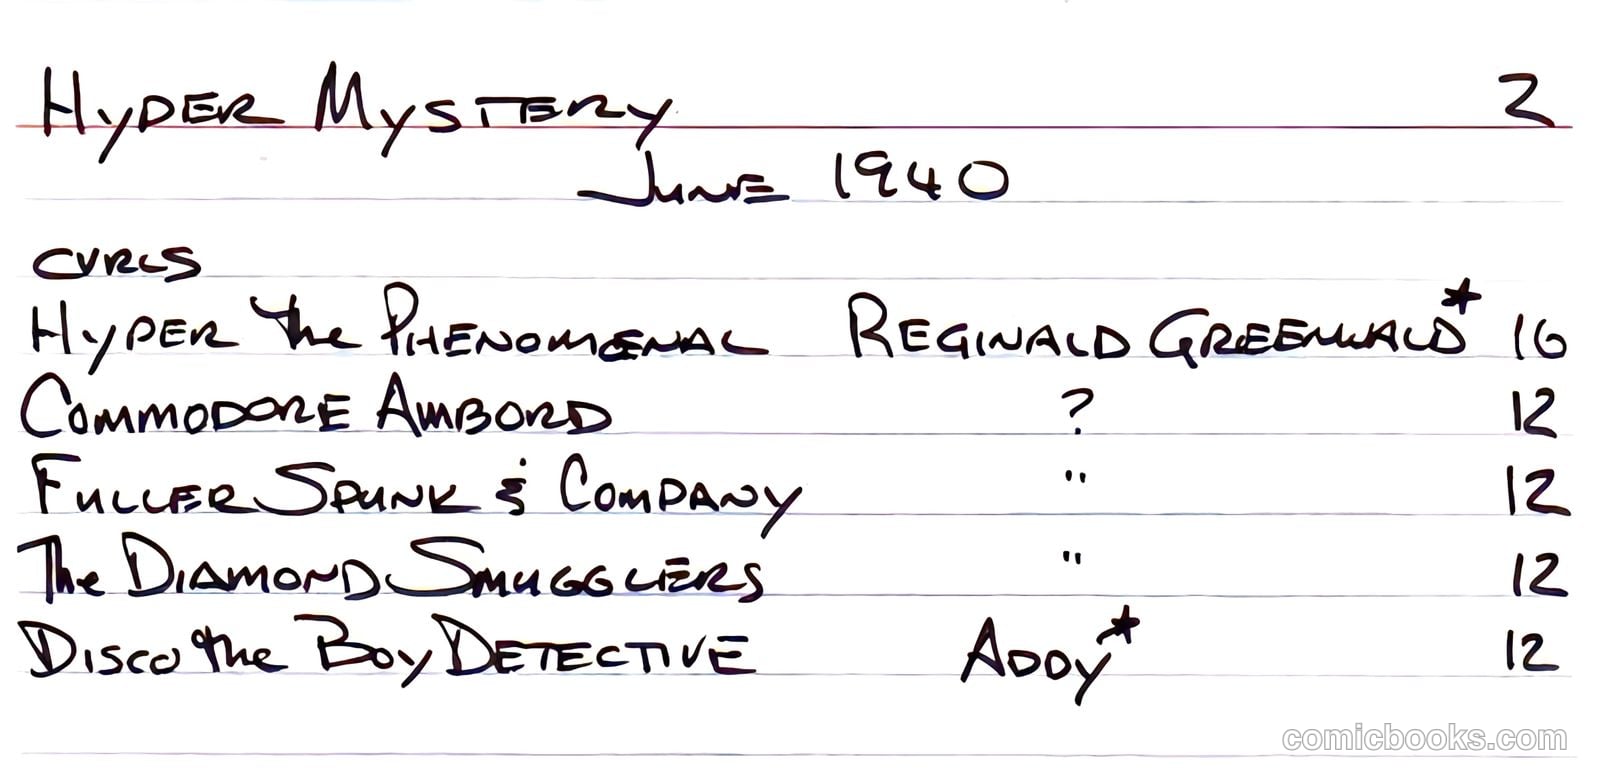 HYPER MYSTERY 2
JUNE 1940
CVRLS
HYPER The PHENOMENAL REGINALD GREENWALD* 16
COMMODORE AMBORD ? 12
FULLER SPUNK & COMPANY " 12
The DIAMOND SMUGGLERS " 12
DISCO the BOY DETECTIVE ADDY* 12
comicbooks.com